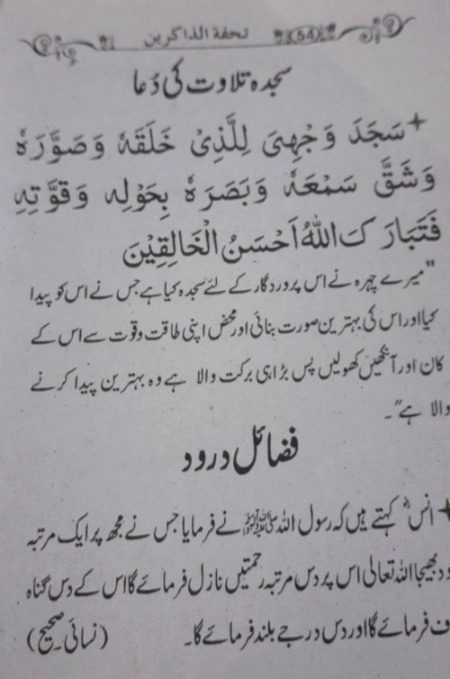 تحفۃ الذاکرین (54)
سجدہ تلاوت کی دُعا
سَجَدَ وَجْهِىَ لِلَّذِىْ خَلَقَهٗ وَصَوَّرَهٗ
وَشَقَّ سَمْعَهٗ وَبَصَرَهٗ بِحَوْلِهٖ وَقُوَّتِهٖ
فَتَبَارَكَ اللهُ اَحْسَنُ الْخَالِقِيْنَ
"میرے چہرہ نے اس پروردگار کے لئے سجدہ کیا ہے جس نے اس کو پیدا
کیا اور اس کی بہترین صورت بنائی اور محض اپنی طاقت وقوت سے اس کے
کان اور آنکھیں کھولیں پس بڑا ہی برکت والا ہے وہ بہترین پیدا کرنے
والا ہے"۔
فضائل درود
انسؓ کہتے ہیں کہ رسول اللہ ﷺ نے فرمایا جس نے مجھ پر ایک مرتبہ
د بھیجا اللہ تعالی اس پر دس مرتبہ رحمتیں نازل فرمائے گا اس کے دس گناہ
ف فرمائے گا اور دس درجے بلند فرمائے گا۔ (نسائی۔صحیح)